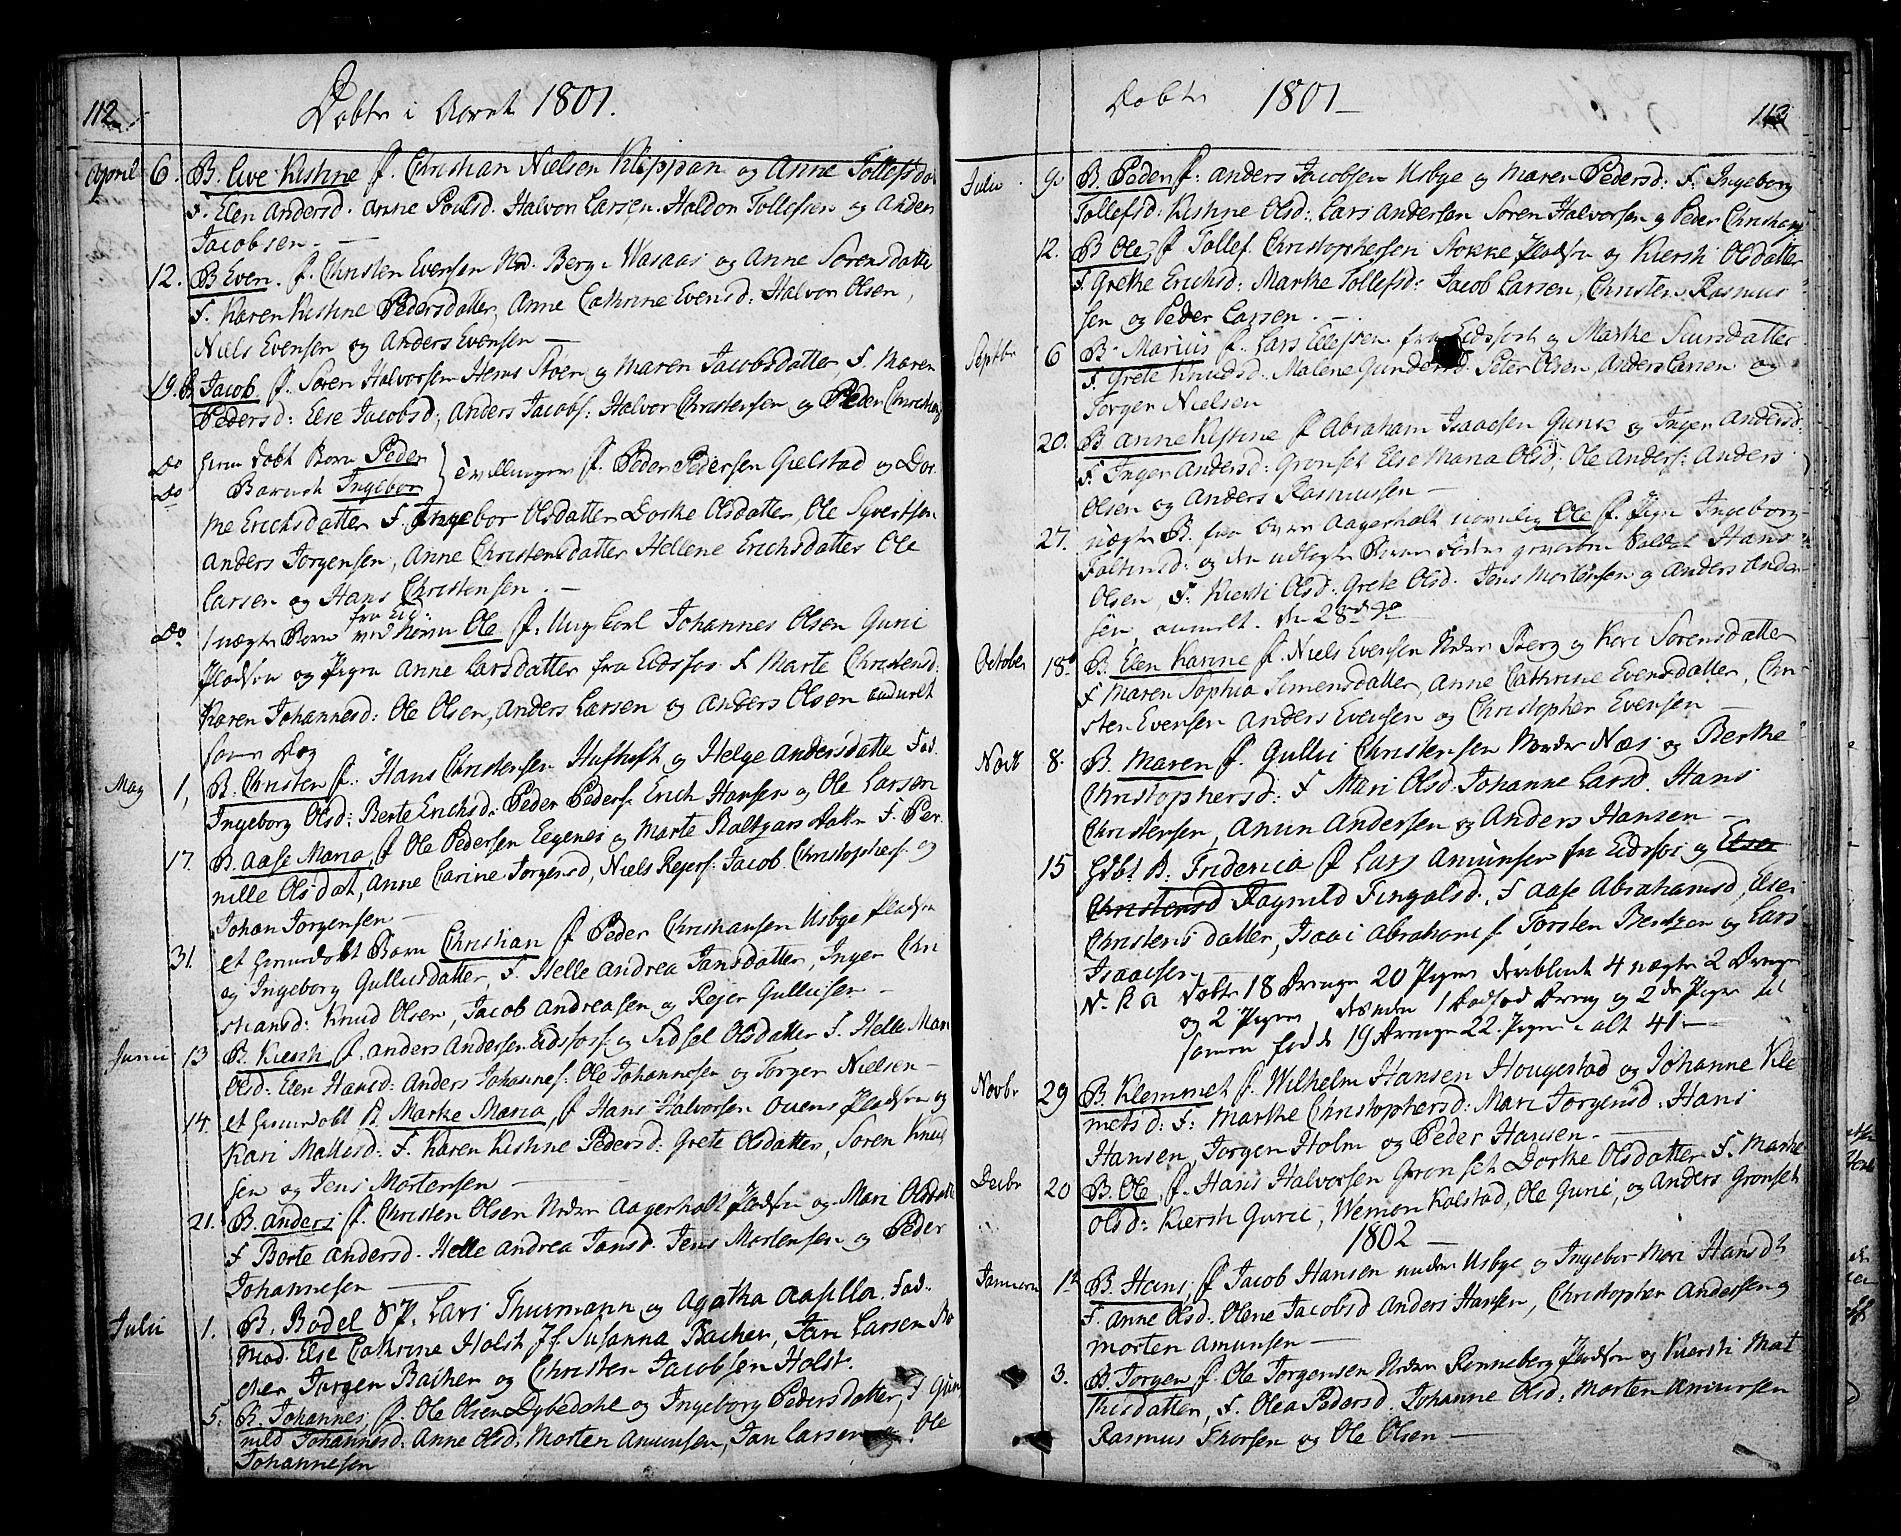 112
Døbte i Aaret 1801.
April 6. B. Live Kistine P. Christian Nielsen Klippan og Anne Tollefsda
F. Elen Andersd. Anne Poulsd. Halvon Larsen. Haldon Tollefsen og Anders
Jacobsen. —
12. B Even. P. Christen Evensen Nd. Berg i Waaas og Anne Sorensdatter
F. Karen Kistine Pedersdatter, Anne Cathrine Evensd: Halvon Olsen,
Niels Evensen og Anders Evensen —
19. B Jacob P. Soren Halvorsen Hems Stoen og Maren Jacobsdatter F. Maren
Pedersd: Else Jacobsd; Anders Jacobs: Halvor Christensen og Peder Christians
Do hiem døbt Barn Peder
Do Barnet Ingebor } tvillinger P. Peder Pedersen Gielstad og Dor
the Erichsdatter F. Ingebor Olsdatter Dorke Olsdatter, Ole Syvertsen
Anders Jorgensen, Anne Christensdatter Hellene Erichsdatter Ole
Larsen og Hans Christensen. —
fra Eid:
Do 1 uægte Barn ved Navn Ole P. Ung Karl Johannes Olsen Guric
Pladsen og Pigen Anne Larsdatter fra Eidsfos F Marte Christensd:
Karen Johannesd: Ole Olsen, Anders Larsen og Anders Olsen anmelt
samme Dag
May 1, B. Christen P. Hans Christensen Hafthoft og Helge Andersdatte Fad.
Ingeborg Olsd: Berte Erichsd: Peder Peders: Erich Hansen og Ole Larsen
17. B. Aase Maria, P Ole Pedersen Eegenes og Marte Baltzarsdatter F. Per
nille Olsdat, Anne Carine Jorgensd, Niels Rejers: Jacob Christophers: og
Johan Jorgensen —
31. et hiemdøbt Barn Christian P Peder Christiansen Usbye Pladsen
og Ingeborg Gullicsdatter, F. Helle Andrea Jansdatter, Inger Chri
stiansd: Knud Olsen, Jacob Andreasen og Rejer Gullicsen —
Junii 13 B. Kiersti P. Anders Andersen Eidsfos: og Sidsel Olsdatter F. Helle Mari
Olsd: Elen Hansd: Anders Johannes: Ole Johannesen og Torger Nielsen —
14. et hiemdøbt B Marthe Maria, P Hans Halvorsen Ouens Pladsen og
Kari Mattisd: F. Karen Kistine Pedersd: Grete Olsdatter, Soren Knud
sen og Jens Mortensen —
21. B. Anders P Christen Olsen Nedre Aagerholt Pladsen og Mari Olsdatte
F Borte Andersd. Helle Andrea Jansd. Jens Mortensen og Peder
Johannesen —
Julii 1. B. Bodel P. Lars Thurmann og Agatha Aasilla. Fad.
Mad. Else Cathrine Holst Jf. Susanna Bacher, Jan Larsen Ba
cher Jorgen Bacher og Christen Jacobsen Holst.
5. B. Johannes, P. Ole Olsen Dybedahl og Ingeborg Pedersdatter, F Gun
nild Johannesd: Anne Olsd: Morten Amunsen, Jan Larsen og Ole
Johannesen
Dobte 1801 —
113
Julii 9. B. Peder P. Anders Jacobsen Usbye og Maren Pedersd: F. Ingeborg
Tollefsd: Kistine Olsd: Lars Andersen Soren Halvorsen og Peder Christians
12. B Ole, P Tollef Christophersen Stokke Pladsen og Kiersti Olsdatter
F. Grethe Erichsd: Marthe Tollefsd: Jacob Larsen, Christen Rasmus
sen og Peder Larsen. —
Septbr 6 B. Marius P. Lars Ellefsen fra Eidsfos og Marthe Siursdatter
F. Grete Knudsd. Malene Gundersd Peter Olsen, Anders Larsen og
Torger Nielsen
20. B Anne Kistine P Abraham Isaacsen Guric og Inger Andersd.
F. Inger Andersd: Gronset Else Maria Olsd: Ole Anders: Anders
Olsen og Anders Rasmussen —
27. uægte B. fra Øvre Aagerholt navnlig Ole P. Pigen Ingeborg
Faltinsd: og den udlagte Barne Fader gevorben Soldat Hans
Olsen, F. Kiersti Olsd: Grete Olsd. Jens Mortensen og Anders Ander
sen, anmelt. den 28de do
October 18. B. Elen Karine P. Niels Evensen Nedre Berg og Kari Sorensdatter
F Maren Sophia Simensdatter, Anne Cathrine Evensdatter, Chri
sten Evensen Anders Evensen og Christopher Evensen —
Novb 8. B. Maren P. Gullic Christensen Nordre Næs og Berthe
Christophersd: F Mari Olsd: Johanne Larsd. Hans
Christensen, Amun Andersen og Anders Hansen —
15 Hdbt B: Friderica P Lars Amunsen fra Eidsfos og Elsea
Christensd Ragnild Fingalsd. F Aase Abrahamsd, Else
Christensdatter, Isaac Abrahams: Torsten Bentzen og Lars
Isaacsen
N. B a Døbte 18 Drenge 20 Piger deriblant 4 uægte 2 Drenge
og 2 Piger, desuden 1 dødfød Dreng og 2 de Piger til
samen fødde 19 Drenge 22 Piger i alt 41 —
Novbr 29 B. Klemmet P. Wilhelm Hansen Hougestad og Johanne Kle
metsd: F: Marthe Christophersd: Mari Jorgensd: Hans
Hansen, Jorgen Holm og Peder Hansen. —
Decbr 20 B. Ole, P. Hans Halvorsen Gronset Dorthe Olsdatter F. Marthe
Olsd: Kiersti Guric, Wemon Kolstad, Ole Guric, og Anders Gronset
1802 —
Januarii 1te B. Hans, P Jacob Hansen under Usbye og Ingebor Mari Hansdt
F. Anne Olsd: Olene Jacobsd Anders Hansen, Christopher Andersen og
Morten Amunsen —
3. B. Jorgen P. Ole Jorgensen Nedre Renneberg Pladsen og Kiersti Mat
thisdatter, F. Olea Pedersd. Johanne Olsd: Morten Amunsen
Rasmus Thorsen og Ole Olsen —